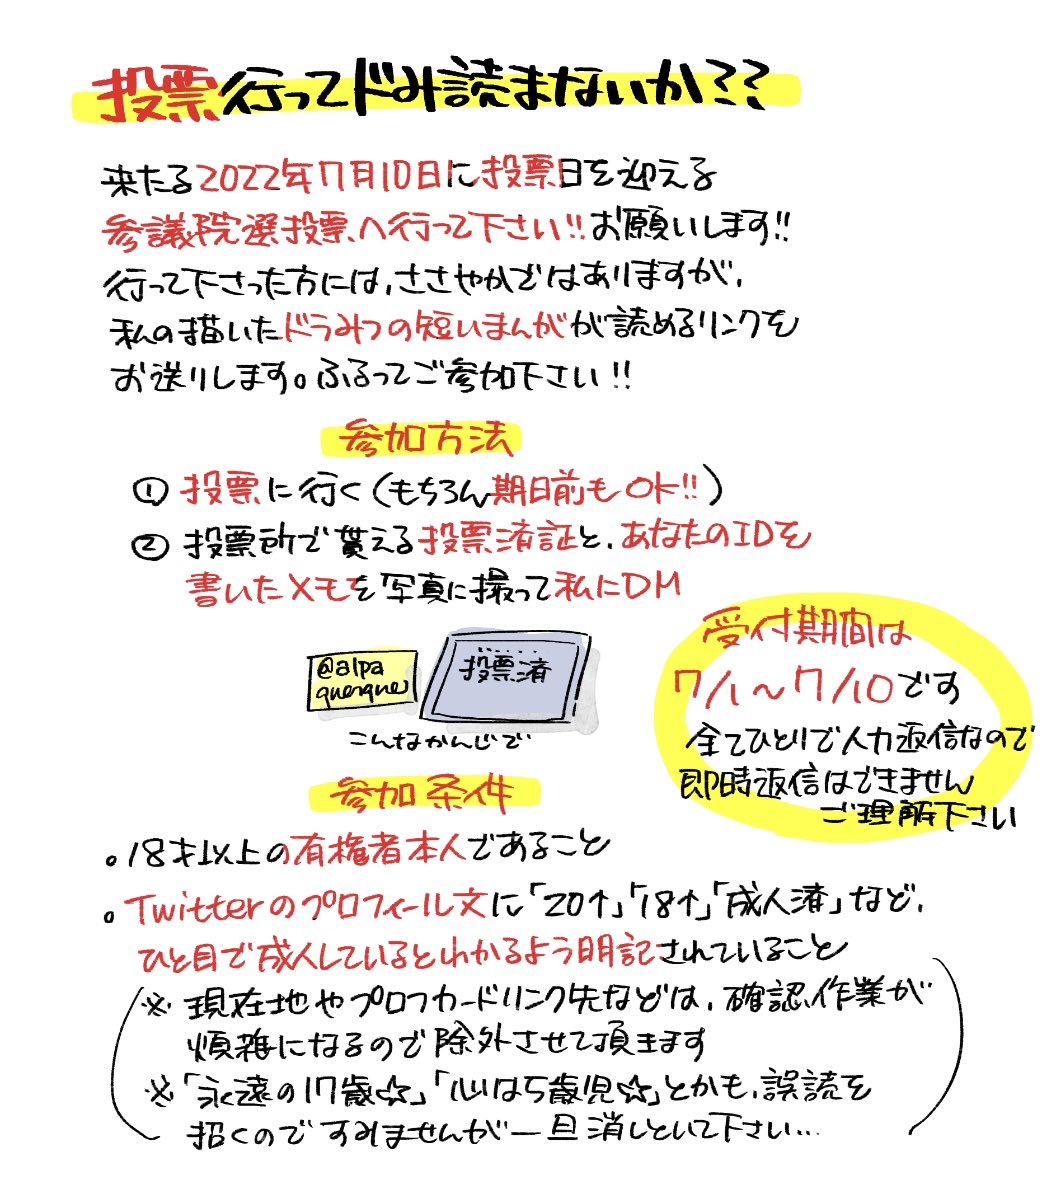 投票行ってドみ読まないか??
来たる2022年7月10日に投票日を迎える
参議院選投票へ行って下さい!!お願いします!!
行って下さった方には、ささやかではありますが、
私の描いたドラみつの短いまんがが読めるリンクを
お送りします。ふるってご参加下さい!!
参加方法
① 投票に行く(もちろん期日前もOK!!)
② 投票所で貰える投票済証と、あなたのIDを
書いたメモを写真に撮って私にDM
@alpa
querque
投票済
こんなかんじで
受付期間は
7/1〜7/10です
全てひとりで人力返信なので
即時返信はできません
ご理解下さい
参加条件
。18才以上の有権者本人であること
。Twitterのプロフィール文に「20↑」「18↑」「成人済」など、
ひと目で成人しているとわかるよう明記されていること
※ 現在地やプロフカードリンク先などは、確認作業が
煩雑になるので除外させて頂きます
※「永遠の17歳☆」「心は5歳児☆」とかも、誤読を
招くのですみませんが一旦消しといて下さい...